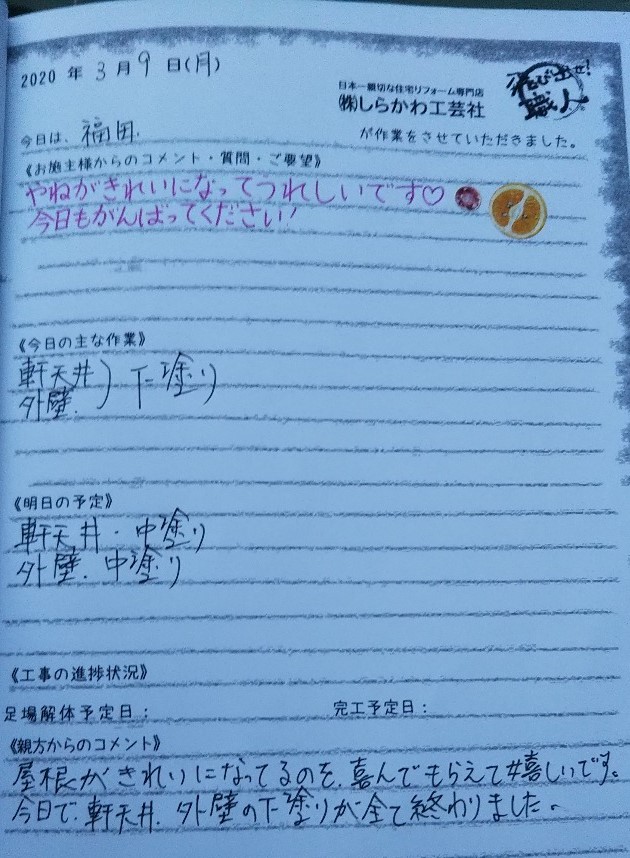 2020 年 3 月 9 日(月)
日本一親切な住宅リフォーム専門店
㈱しらかわ工芸社
飛び出せ!
職人
今日は、福田. が作業をさせていただきました。
《お施主様からのコメント・質問・ご要望》
やねがきれいになってうれしいです♡
今日もがんばってください!
《今日の主な作業》
軒天井
外壁. ) 下塗り
《明日の予定》
軒天井・中塗り
外壁. 中塗り
《工事の進捗状況》
足場解体予定日: 完工予定日:
《親方からのコメント》
屋根がきれいになってるのを、喜んでもらえて嬉しいです。
今日で、軒天井. 外壁の下塗りが全て終わりました。